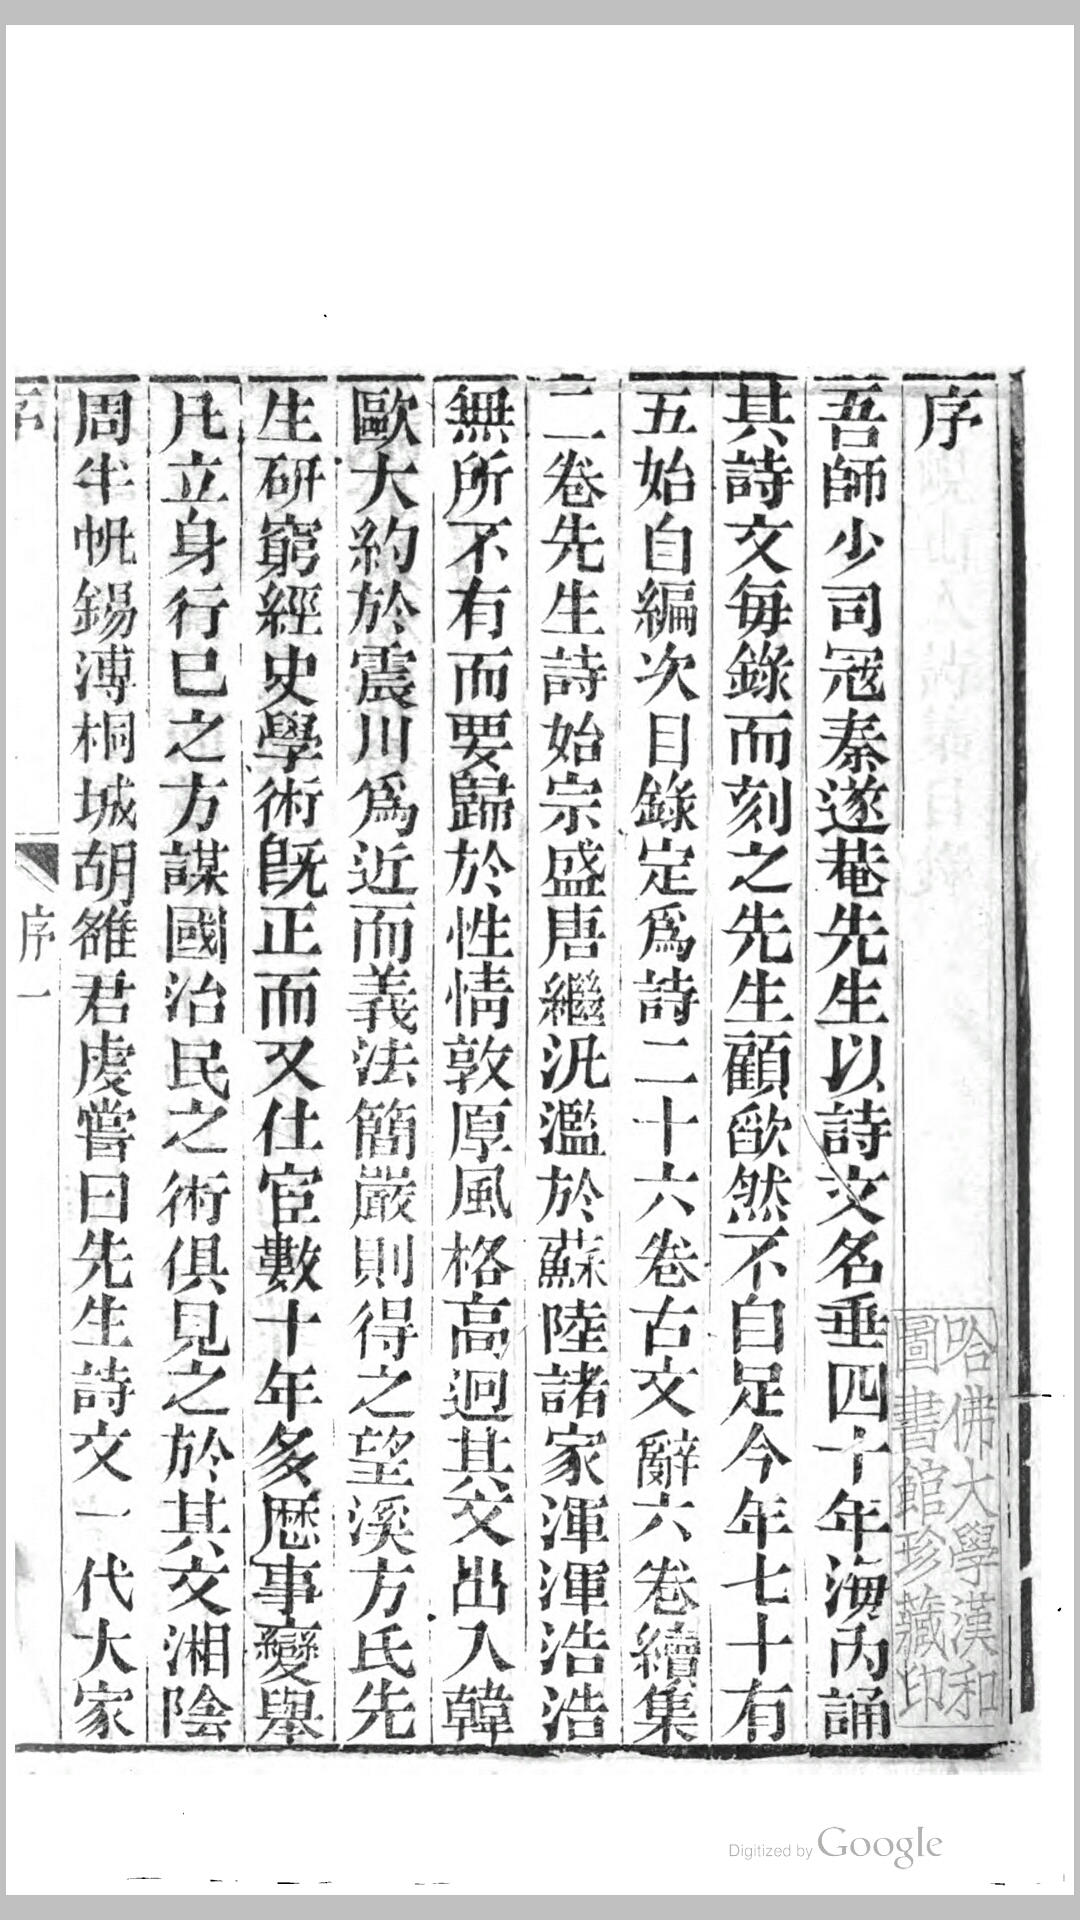 序
吾師少司寇秦遂菴先生以詩文名垂四十年海內誦
其詩文每錄而刻之先生顧歉然不自足今年七十有
五始自編次目錄定爲詩二十六卷古文辭六卷續集
二卷先生詩始宗盛唐繼汎濫於蘇陸諸家渾渾浩浩
無所不有而要歸於性情敦厚風格高迥其文出入韓
歐大約於震川爲近而義法簡嚴則得之望溪方氏先
生研窮經史學術旣正而又仕宦數十年多歴事變舉
凡立身行巳之方謀國治民之術俱見之於其文湘陰
周半帆錫溥桐城胡雒君虔嘗曰先生詩文一代大家
序一
哈佛大學漢和
圖書館珍藏印
Digitized by Google